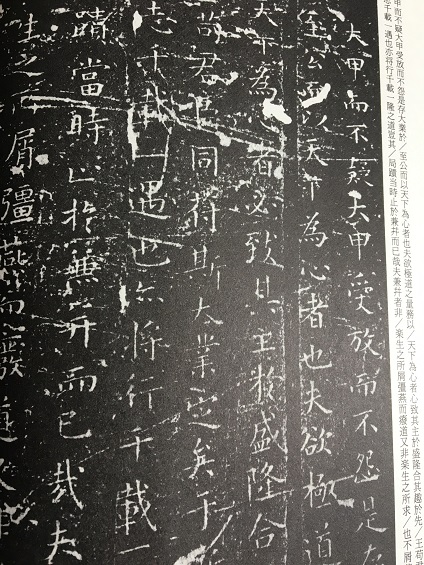 甲而不疑大甲受放而不怨是存大業於／至公而以天下為心者也夫欲極道之量務以／天下為心者心致其主於盛隆合其趣於先／王苟君
志千載一遇也亦将行千載一隆之道豈其／局蹟当時止於兼弁而已哉夫兼弁者非／楽生之所屑彊燕而癈道又非楽生之所求／也不屑
大甲而不疑大甲受放而不怨是存
至公而以天下為心者也夫欲極道
天下為心者必致其主於盛隆合
苟君臣同符斯大業定矣于
志千載一遇也亦將行千載一
蹟當時止於兼并而已哉夫
生之所屑彊燕而廢道又非